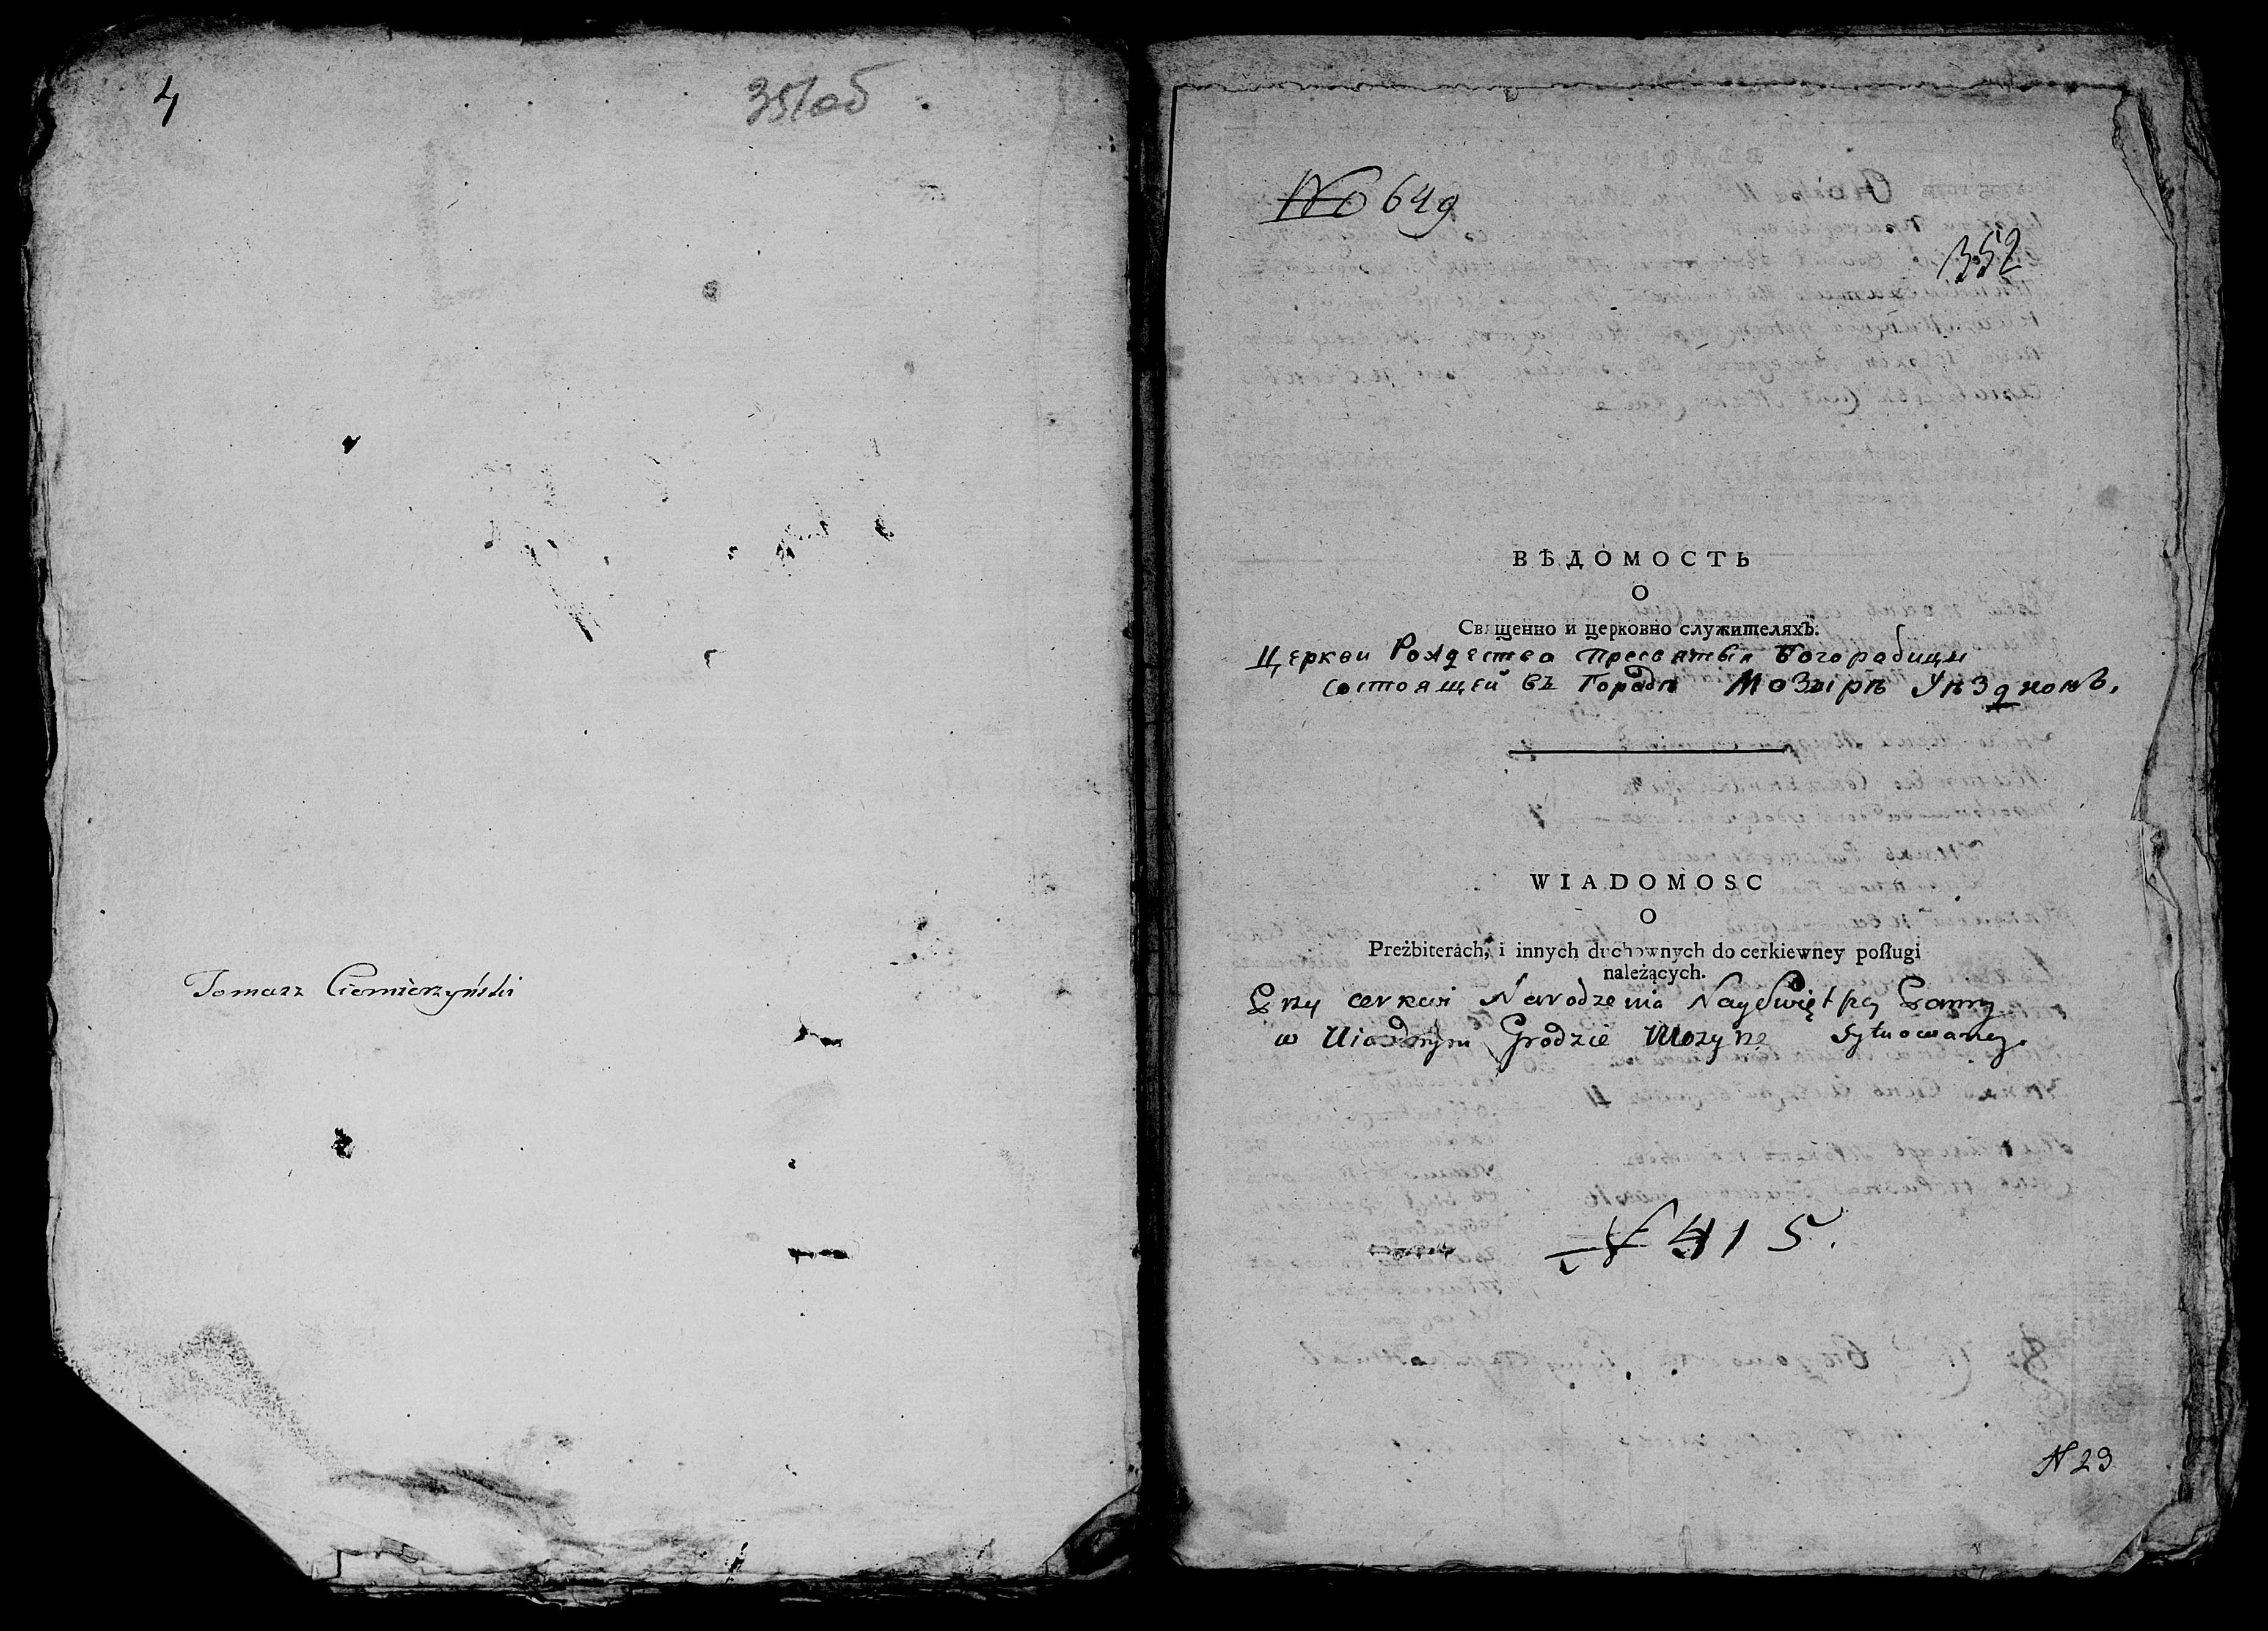 4
351об
Tomasz Ciemierzyński
No 649
352
ВѢДОМОСТЬ
О
Священно и церковно служителяхъ.
Церкви Рождества пресвятыя Богородицы
состоящей въ Городѣ Мозырѣ Уѣздномъ,
WIADOMOSC
O
Preżbiterách, i innych duchownych do cerkiewney posługi
należących.
Przy cerkwi Narodzenia NayŚwiętszey Panny
w Uiazdnym Grodzie Mozyrze sytuowaney.
№ 415.
N 29